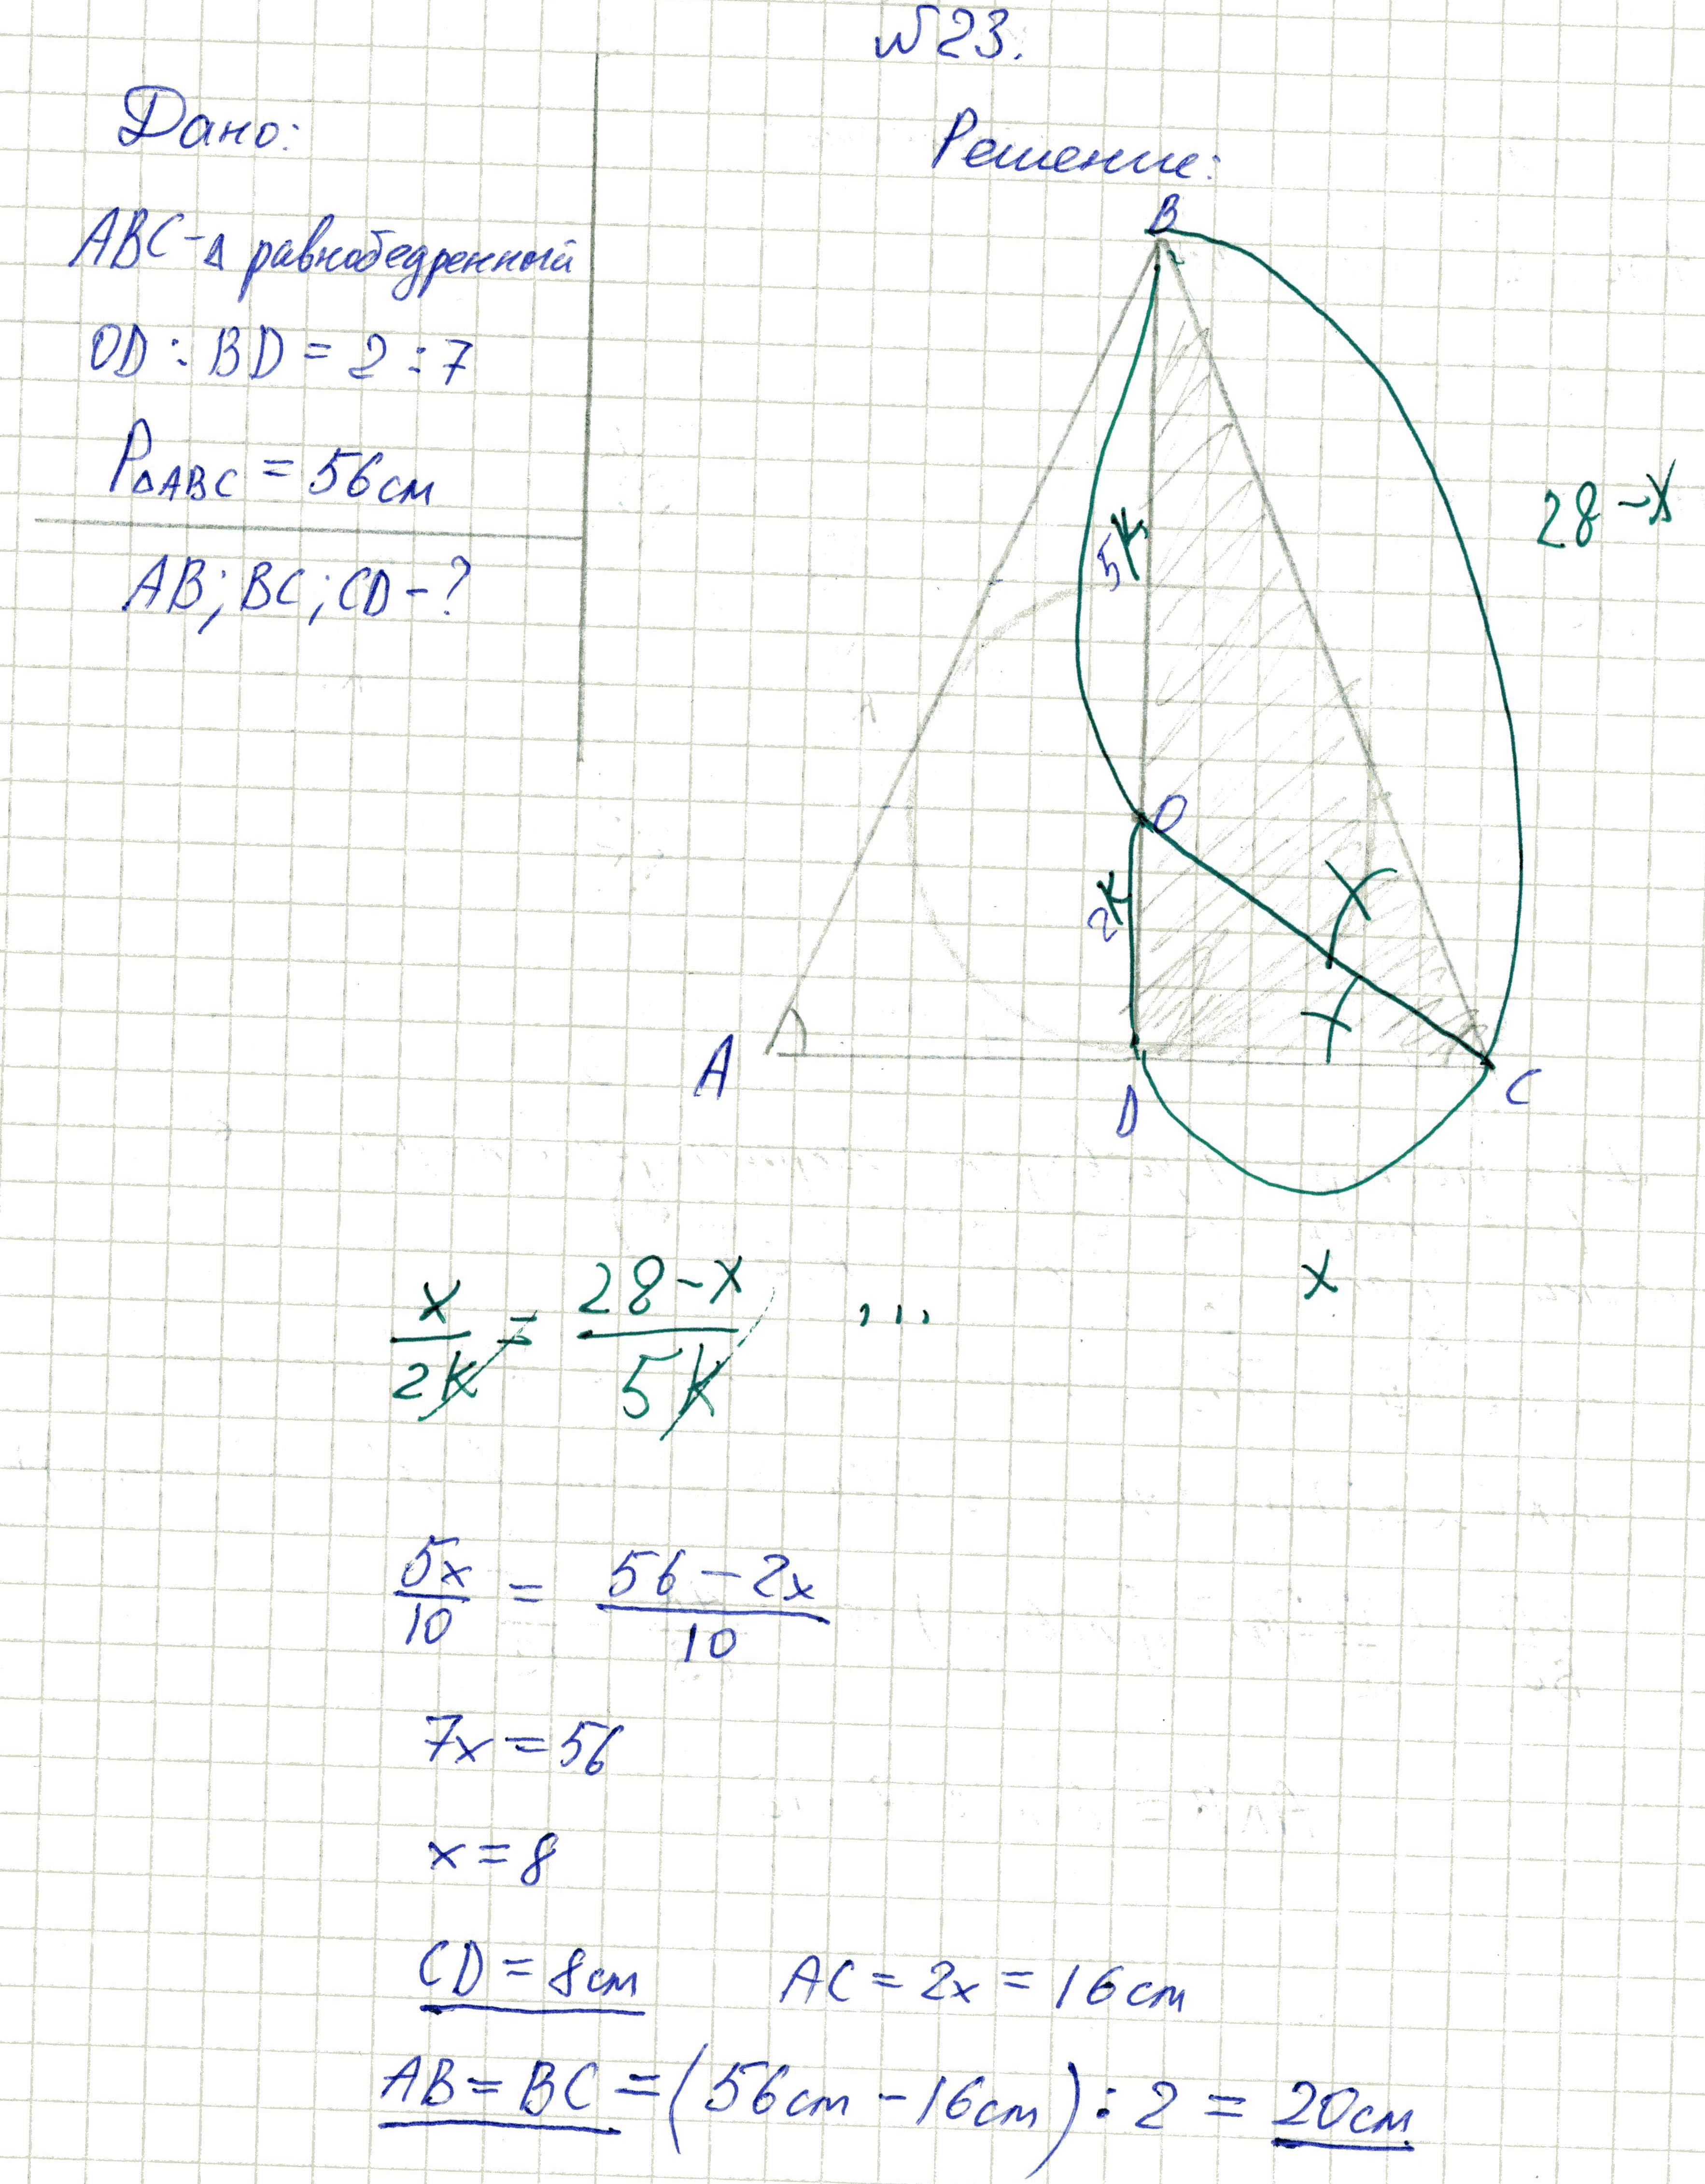 №23.
Дано:
Решение:
АВС-Δ равнобедренный
OD : BD = 2 : 7
PΔABC = 56см
AB; BC; CD - ?
B
28 - x
5k
O
2k
A
D
C
x
x/2k = 28 - x/5k ...
5x/10 = 56 - 2x/10
7x = 56
x = 8
CD = 8см AC = 2x = 16см
AB = BC = (56см - 16см) : 2 = 20см